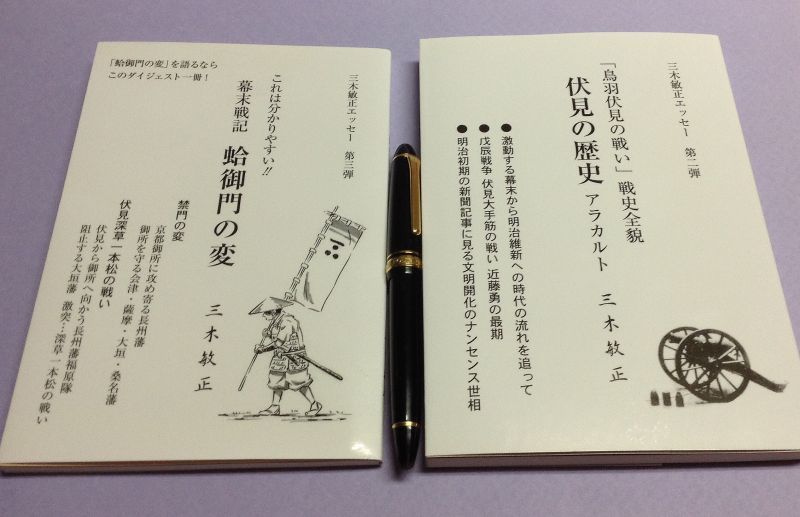 「蛤御門の変」を語るなら
このダイジェスト一冊!
三木敏正エッセー 第三弾
これは分かりやすい!!
幕末戦記 蛤御門の変
三木敏正
禁門の変
京都御所に攻め寄る長州藩
御所を守る会津・薩摩・大垣・桑名藩
伏見深草一本松の戦い
伏見から御所へ向かう長州藩福原隊
阻止する大垣藩 激突…深草一本松の戦い
三木敏正エッセー 第二弾
「鳥羽伏見の戦い」戦史全貌
伏見の歴史 アラカルト 三木敏正
●激動する幕末から明治維新への時代の流れを追って
●戊辰戦争 伏見大手筋の戦い 近藤勇の最期
●明治初期の新聞記事に見る文明開化のナンセンス世相